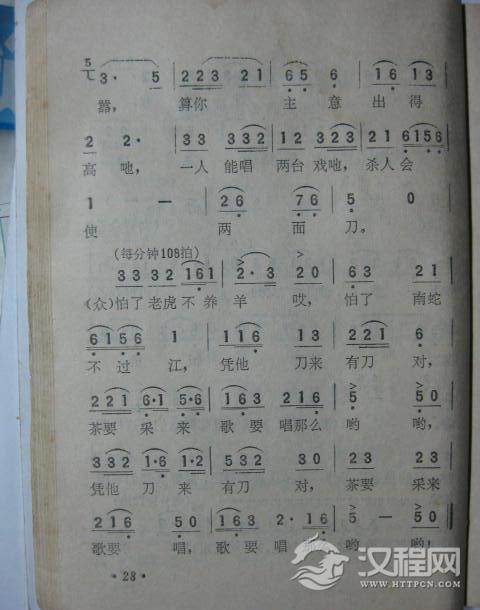 5 3· 5 | 223 21 | 65 6 | 16 13 |
嚣， 算你 主意出得
2 2· | 33 332 | 12 323 | 21 6156 |
高吔， 一人能唱两台戏吔， 杀人会
1 — | 26 76 | 5 0
使 两面刀。
(每分钟108拍)
33 32 161 | 2·3 20 | 63 21 |
(众)怕了老虎不养羊哎， 怕了南蛇
6156 1 | 116 13 | 221 6 |
不过江， 凭他刀来有刀对，
221 6·1 5·6 | 163 216 | 5 50 |
茶要采来歌要唱那么哟哟，
332 1·6 1·2 | 532 30 | 33 23 |
凭他刀来有刀对， 茶要采来
216 50 | 163 2·16 | 5 — 50
歌要唱， 歌要唱那哟哟！
·28·
汉程网
WWW.HTTPCN.COM